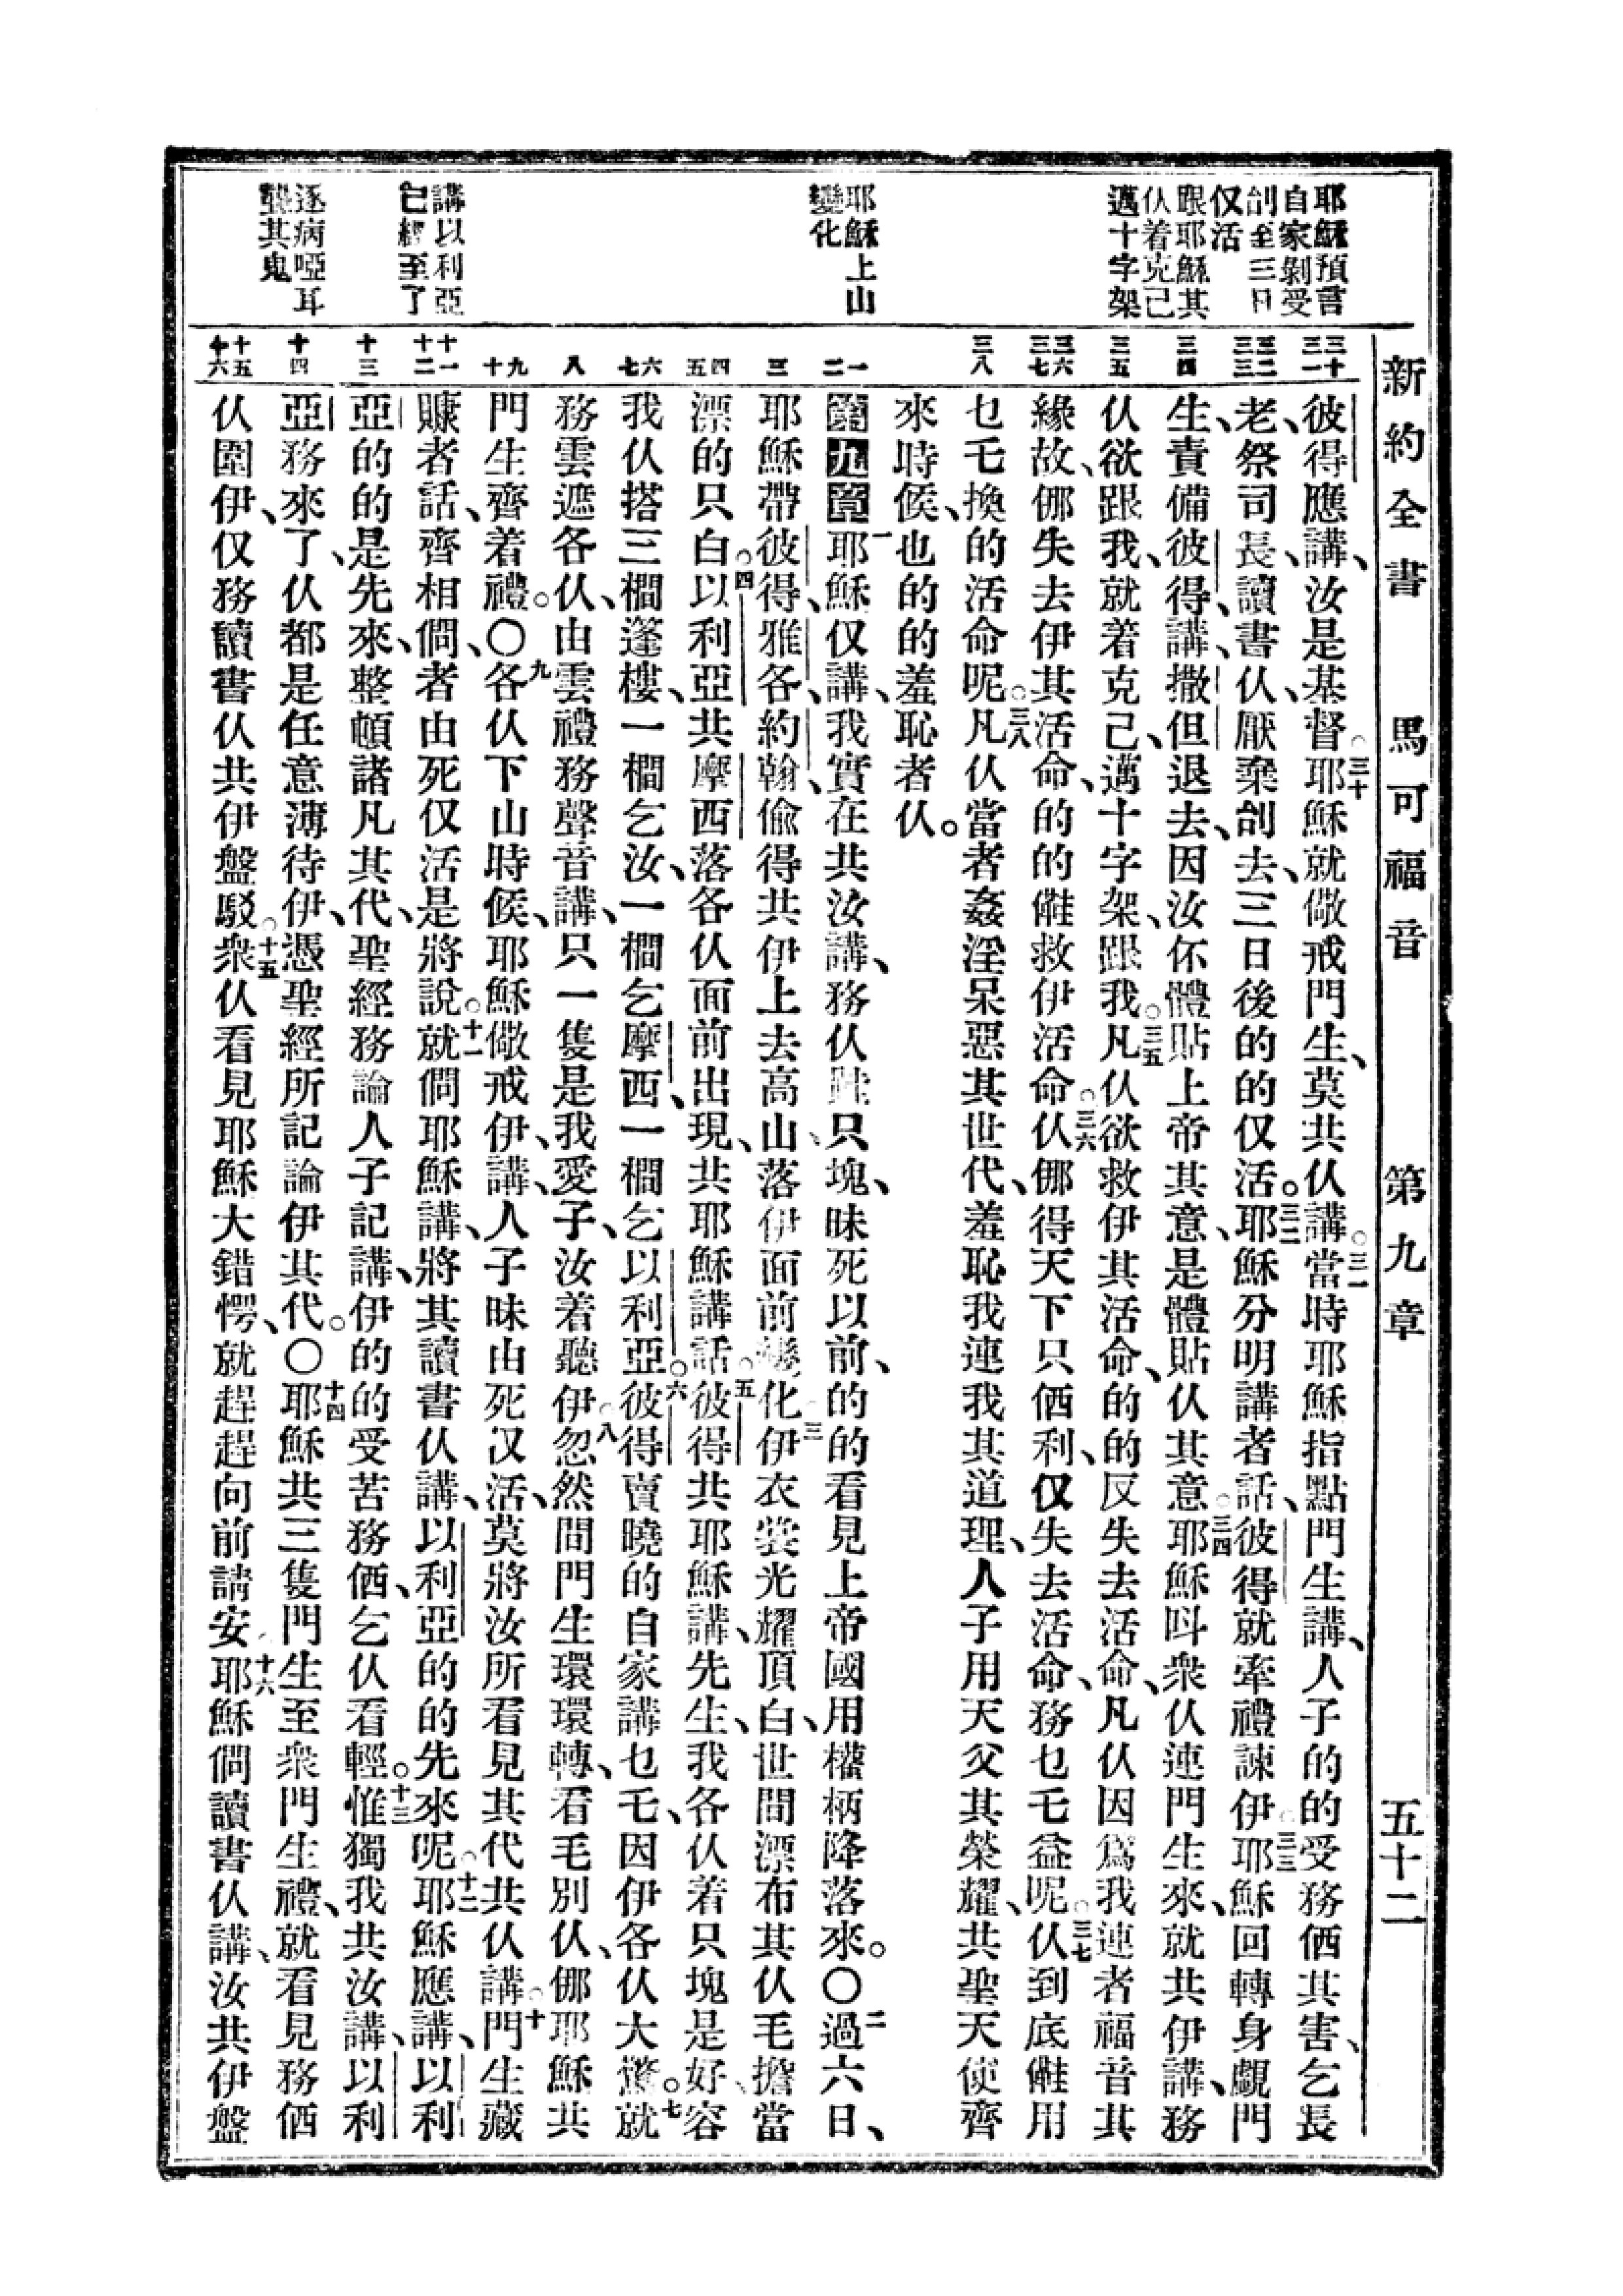 新約全書 馬可福音 第九章 五十二
耶穌預言
自家剝受
刣至三日
仅活
跟耶穌其
仫着克己
邁十字架
耶穌上山
變化
講以利亞
已經至了
逐病啞耳
聾其鬼
三十 三一
三二 三三
三四
三五
三六 三七
三八
一 二
三
四 五
六 七
八
九 十
十一 十二
十三
十四
十五 十六
彼得應講、汝是基督。三十耶穌就儆戒門生、莫共仫講。三一當時耶穌指點門生講、人子的的受務儕其害、乞長
老、祭司長、讀書仫、厭棄刣去、三日後的的仅活。三二耶穌分明講者話、彼得就牽禮諫伊。三三耶穌回轉身覷門
生、責備彼得、講、撒但退去、因汝伓體貼上帝其意、是體貼仫其意。三四耶穌呌衆仫連門生來、就共伊講、務
仫欲跟我、就着克己、邁十字架、跟我。三五凡仫欲救伊其活命、的的反失去活命、凡仫因爲我連者福音其
緣故、倻失去伊其活命、的的𠋭救伊活命。三六仫倻得天下只儕利、仅失去活命、務乜毛益呢。三七仫到底𠋭用
乜毛換的活命呢。三八凡仫當者姦淫呆惡其世代、羞恥我連我其道理、人子用天父其榮耀、共聖天使齊
來時候、也的的羞恥者仫。
第九章 一耶穌仅講、我實在共汝講、務仫𨂾只塊、昧死以前、的的看見上帝國用權柄降落來。〇二過六日、
耶穌帶彼得、雅各、約翰、偸得共伊上去高山、落伊面前變化。三伊衣裳光耀頂白、世間漂布其仫毛擔當
漂的只白。四以利亞共摩西落各仫面前出現、共耶穌講話。五彼得共耶穌講、先生、我各仫着只塊是好、容
我仫搭三橺篷樓、一橺乞汝、一橺乞摩西、一橺乞以利亞。六彼得賣曉的自家講乜毛、因伊各仫大驚。七就
務雲遮各仫、由雲禮務聲音講、只一隻是我愛子、汝着聽伊。八忽然間門生環環轉、看毛別仫、倻耶穌共
門生齊着禮。〇九各仫下山時候、耶穌儆戒伊、講、人子昧由死仅活、莫將汝所看見其代共仫講。十門生藏
賺者話、齊相問、者由死仅活是將說。十一就問耶穌講、將其讀書仫講、以利亞的的先來呢。十二耶穌應講、以利
亞的的是先來、整頓諸凡其代、聖經務論人子記講、伊的的受苦務儕、乞仫看輕。十三惟獨我共汝講、以利
亞務來了、仫都是任意薄待伊、憑聖經所記論伊其代。〇十四耶穌共三隻門生至衆門生禮、就看見務儕
仫圍伊、仅務讀書仫共伊盤駁。十五衆仫看見耶穌大錯愕、就趕趕向前請安。十六耶穌問讀書仫講、汝共伊盤